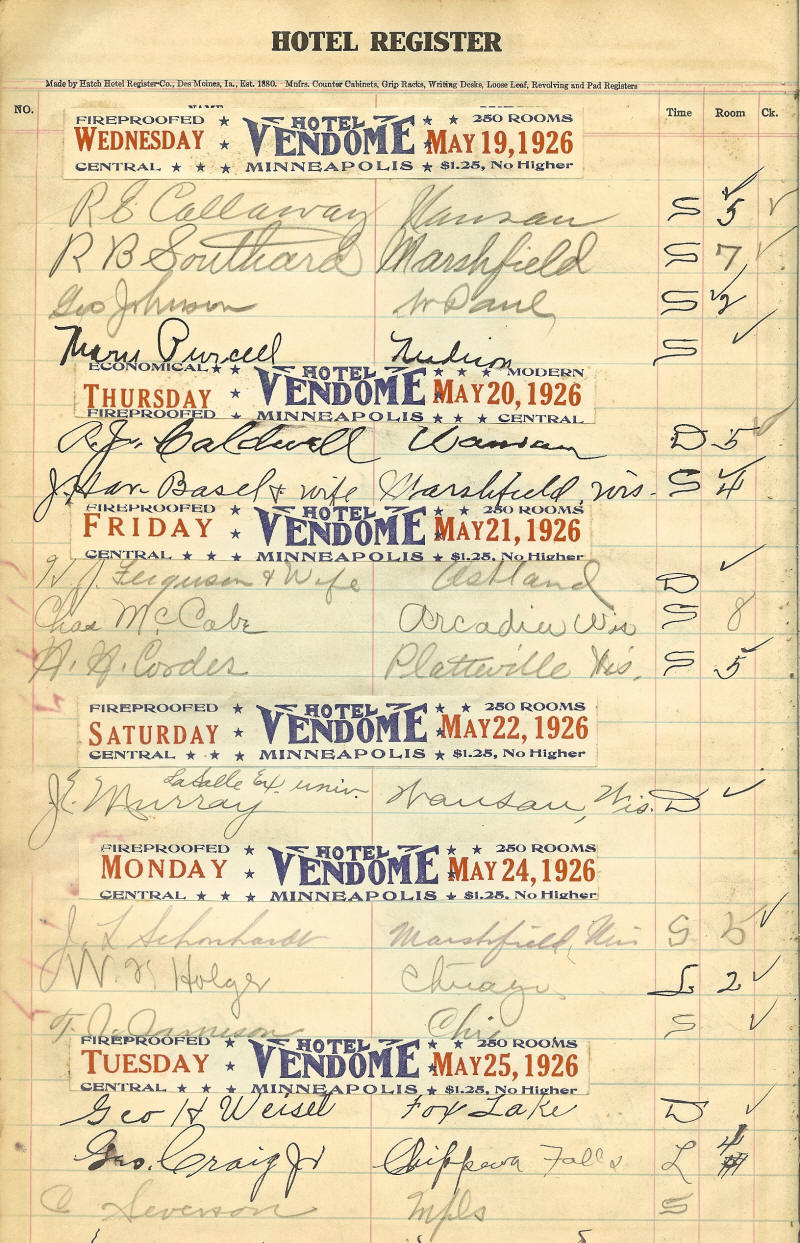 HOTEL REGISTER
Made by Hatch Hotel Register Co., Des Moines, Ia., Est. 1880. Mnfrs. Counter Cabinets, Grip Racks, Writing Desks, Loose Leaf, Revolving and Pad Registers
NO. NAME Time Room Ck.
FIREPROOFED ★ HOTEL ★ ★ 250 ROOMS
WEDNESDAY ★ VENDOME ★ MAY 19, 1926
CENTRAL ★ ★ ★ MINNEAPOLIS ★ $1.25, No Higher
R E Callaway Wausau S 5 ✓
R B Southard Marshfield S 7 ✓
Geo Johnson St Paul S 2 ✓
Mary Purcell S ✓
ECONOMICAL ★ ★ HOTEL ★ ★ ★ MODERN
THURSDAY ★ VENDOME ★ MAY 20, 1926
FIREPROOFED ★ MINNEAPOLIS ★ ★ ★ CENTRAL
Caldwell Wausau D 5 ✓
Basel & wife Marshfield, Wis. S 4
FIREPROOFED ★ HOTEL ★ ★ 250 ROOMS
FRIDAY ★ VENDOME ★ MAY 21, 1926
CENTRAL ★ ★ ★ MINNEAPOLIS ★ $1.25, No Higher
J. Ferguson & Wife Ashland D ✓
Chas McCabe Arcadia Wis S 8
Corder Platteville Wis. S 5
FIREPROOFED ★ HOTEL ★ ★ 250 ROOMS
SATURDAY ★ VENDOME ★ MAY 22, 1926
CENTRAL ★ ★ ★ MINNEAPOLIS ★ $1.25, No Higher
LaSalle Ex. univ.
J E Murray Wausau, Wis. D ✓
FIREPROOFED ★ HOTEL ★ ★ 250 ROOMS
MONDAY ★ VENDOME ★ MAY 24, 1926
CENTRAL ★ ★ ★ MINNEAPOLIS ★ $1.25, No Higher
J. L Schonhardt Marshfield, Wis S 5 ✓
W. Holger Chicago L 2 ✓
Jamieson Chi S ✓
FIREPROOFED ★ HOTEL ★ ★ 250 ROOMS
TUESDAY ★ VENDOME ★ MAY 25, 1926
CENTRAL ★ ★ ★ MINNEAPOLIS ★ $1.25, No Higher
Geo H Weisel Fox Lake D ✓
Geo. Craig Jr Chippewa Falls L 4
C Severson Mpls S